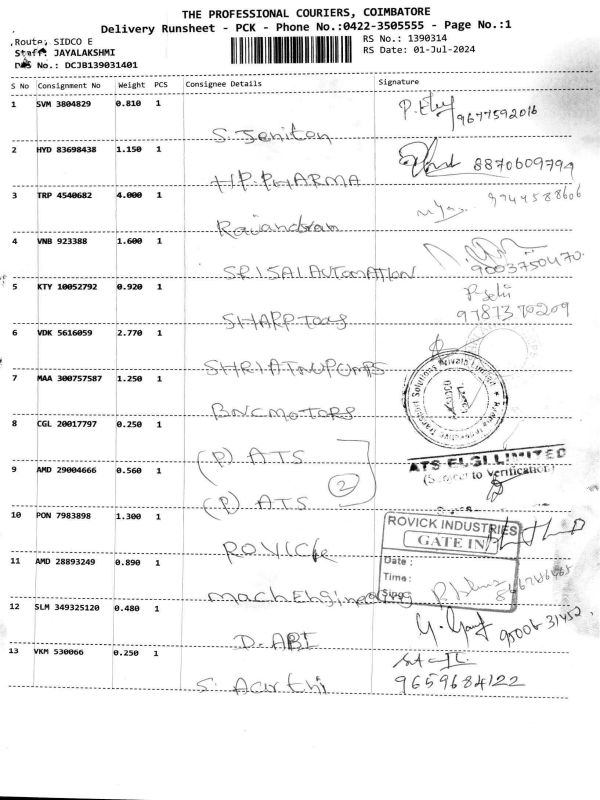 THE PROFESSIONAL COURIERS, COIMBATORE
Delivery Runsheet - PCK - Phone No.:0422-3505555 - Page No.:1
Route: SIDCO E
RS No.: 1390314
Staff: JAYALAKSHMI
RS Date: 01-Jul-2024
No.: DCJB139031401
S No Consignment No Weight PCS Consignee Details Signature
1 SVM 3804829 0.810 1
S. Jeniton 9677592016
2 HYD 83698438 1.150 1
H.P. PHARMA 8870609794
3 TRP 4540682 4.000 1
9944588606
4 VNB 923388 1.600 1
SRI SAI AUTOMATION 9003750470
5 KTY 10052792 0.920 1
SHARP Tools 9787370209
6 VDK 5616059 2.770 1
7 MAA 300757587 1.250 1
BNC MOTORS
8 CGL 20017797 0.250 1
(P) ATS
ATS ELGI LIMITED
(Subject to Verification)
9 AMD 29004666 0.560 1
(P) ATS
2
10 PON 7983898 1.300 1
ROVICK
ROVICK INDUSTRIES
GATE IN
Date :
Time :
Sign :
11 AMD 28893249 0.890 1
Mach Engineering
12 SLM 349325120 0.480 1
D. ABI 95006 31452
13 VKM 530066 0.250 1
9659684122